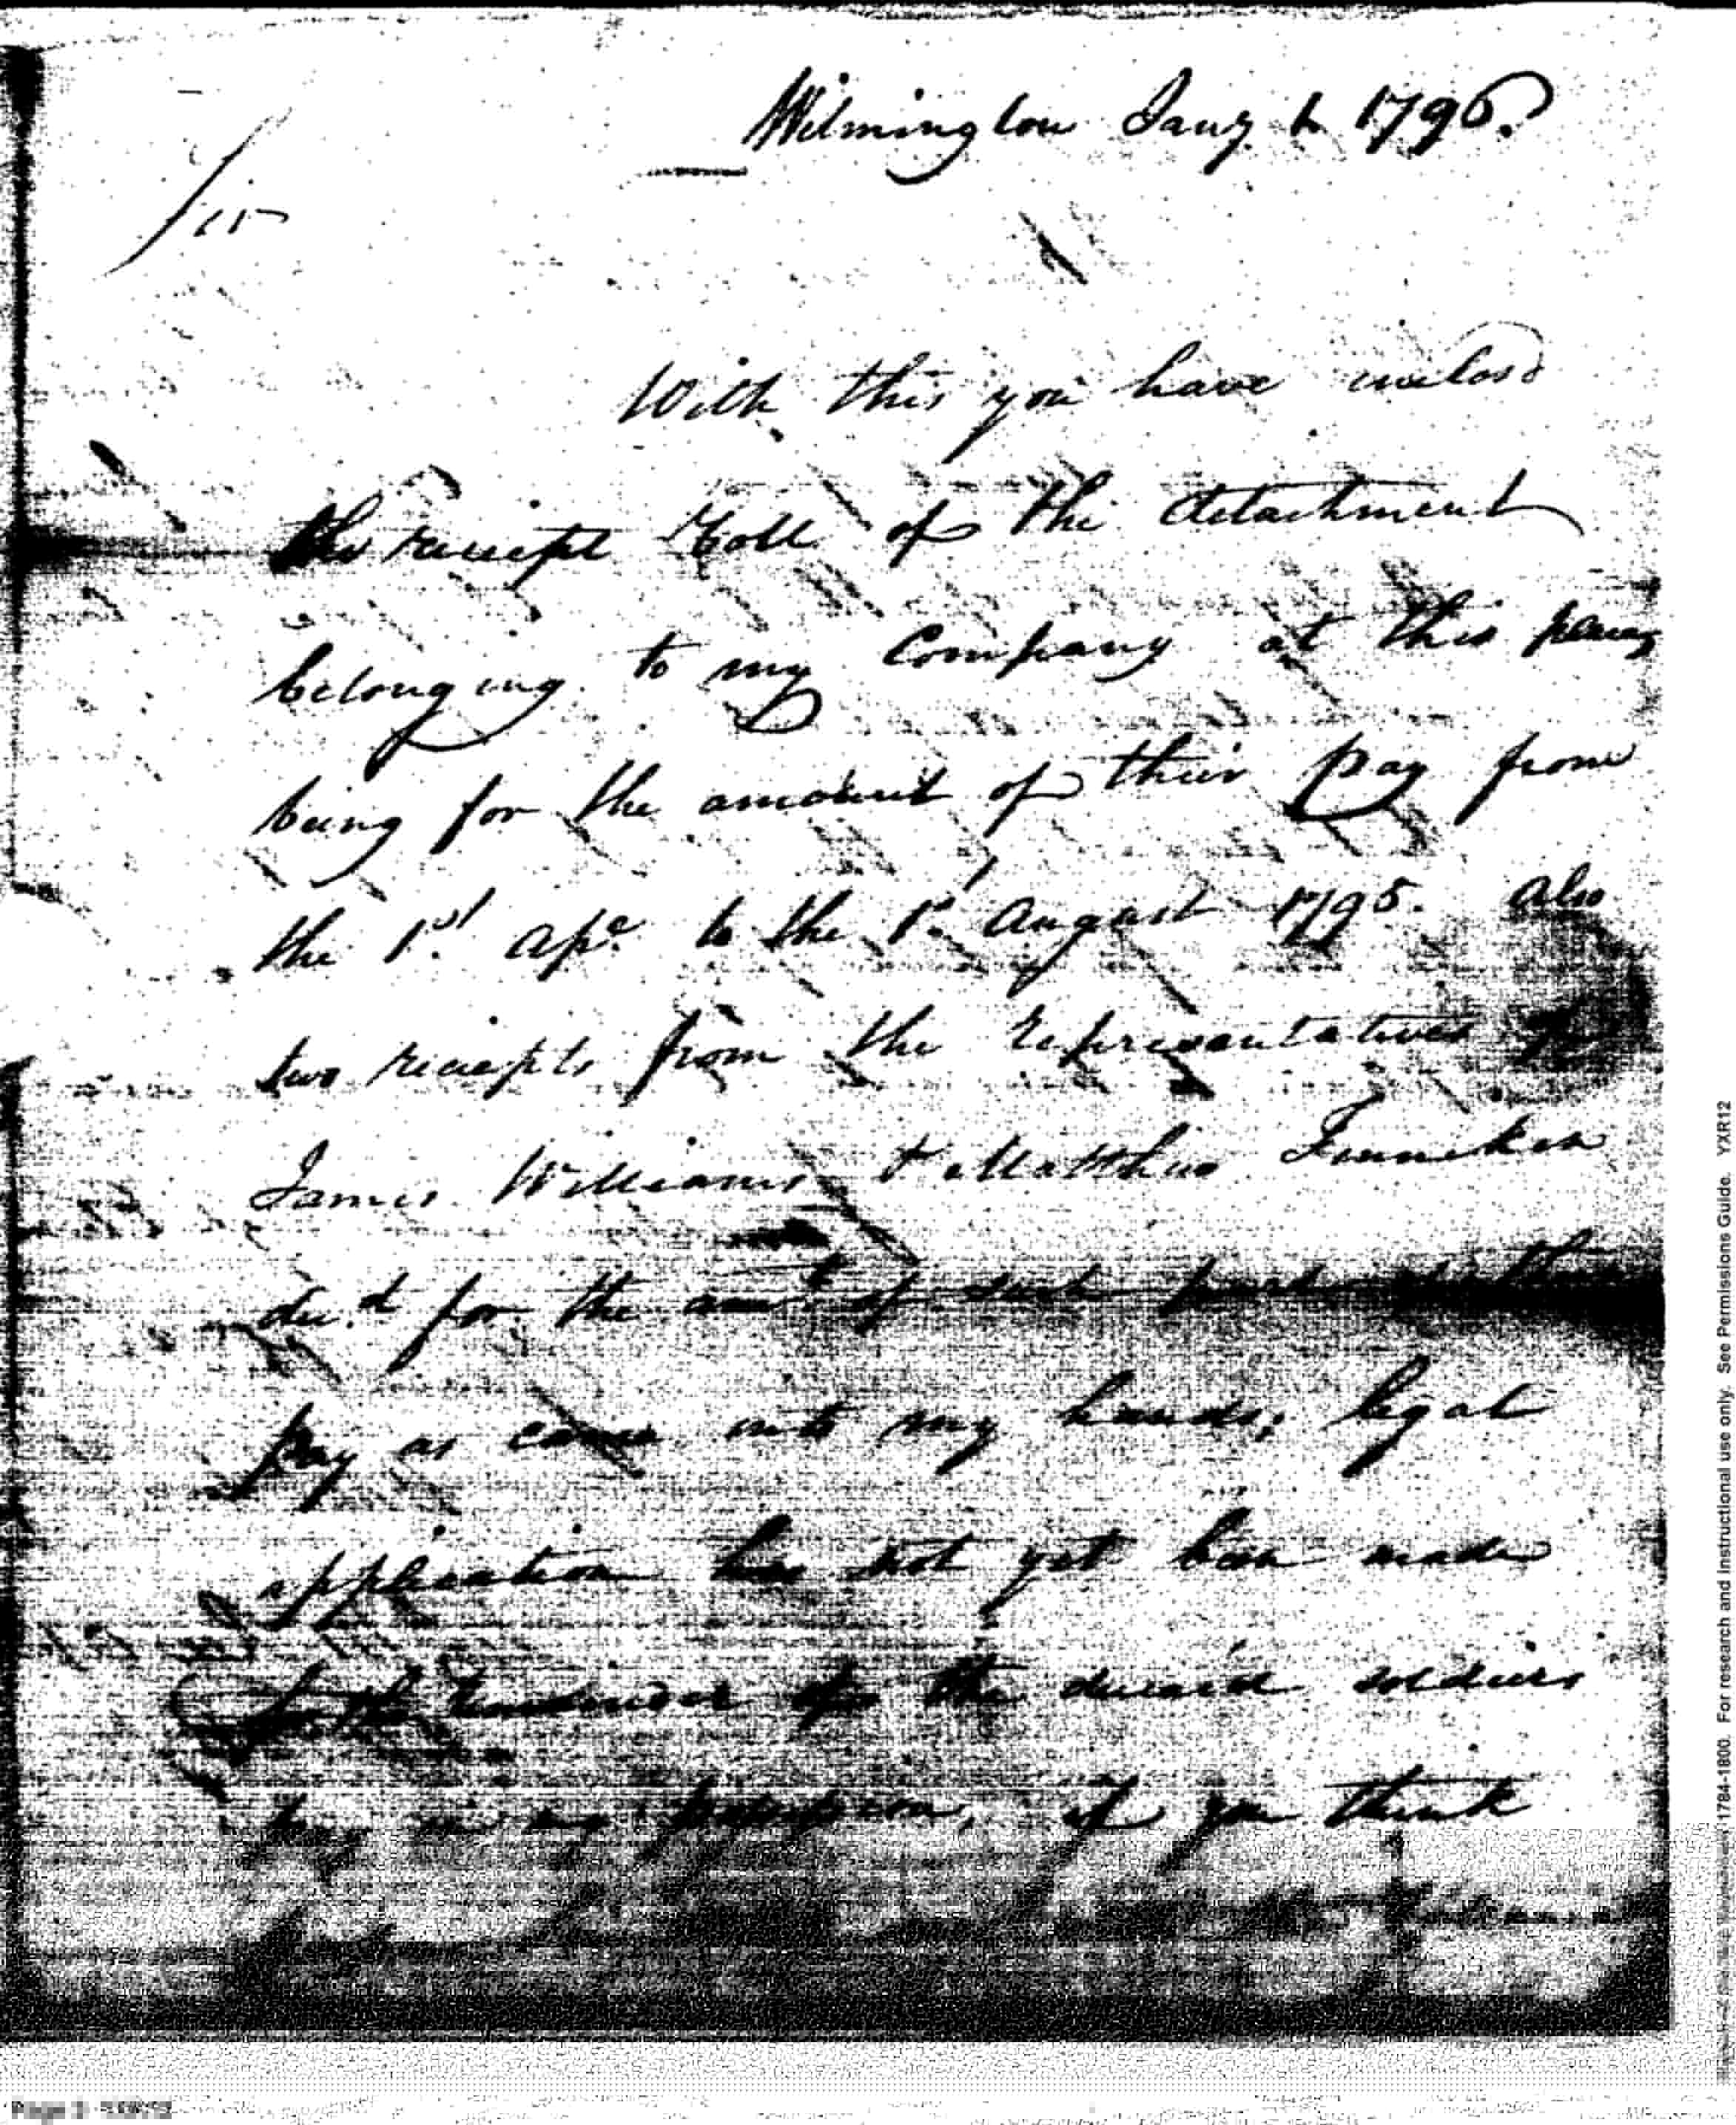 Wilmington Jany. 1. 1796.
/15
With this you have inclosd
the receipt Roll of the detachment
belonging to my Company at this place,
being for the amount of their pay from
the 1st. Apl. to the 1st. August 1795. Also
two receipts from the representatives of
James Williams & Matthew Finniken
decd. for the amt. of such part of their
pay as came into my hands; legal
application has not yet been made
for the remainder of the deceasd soldiers
pay in my possession, if you think
1784-1800. For research and instructional use only. See Permissions Guide. YXR12
Page 3